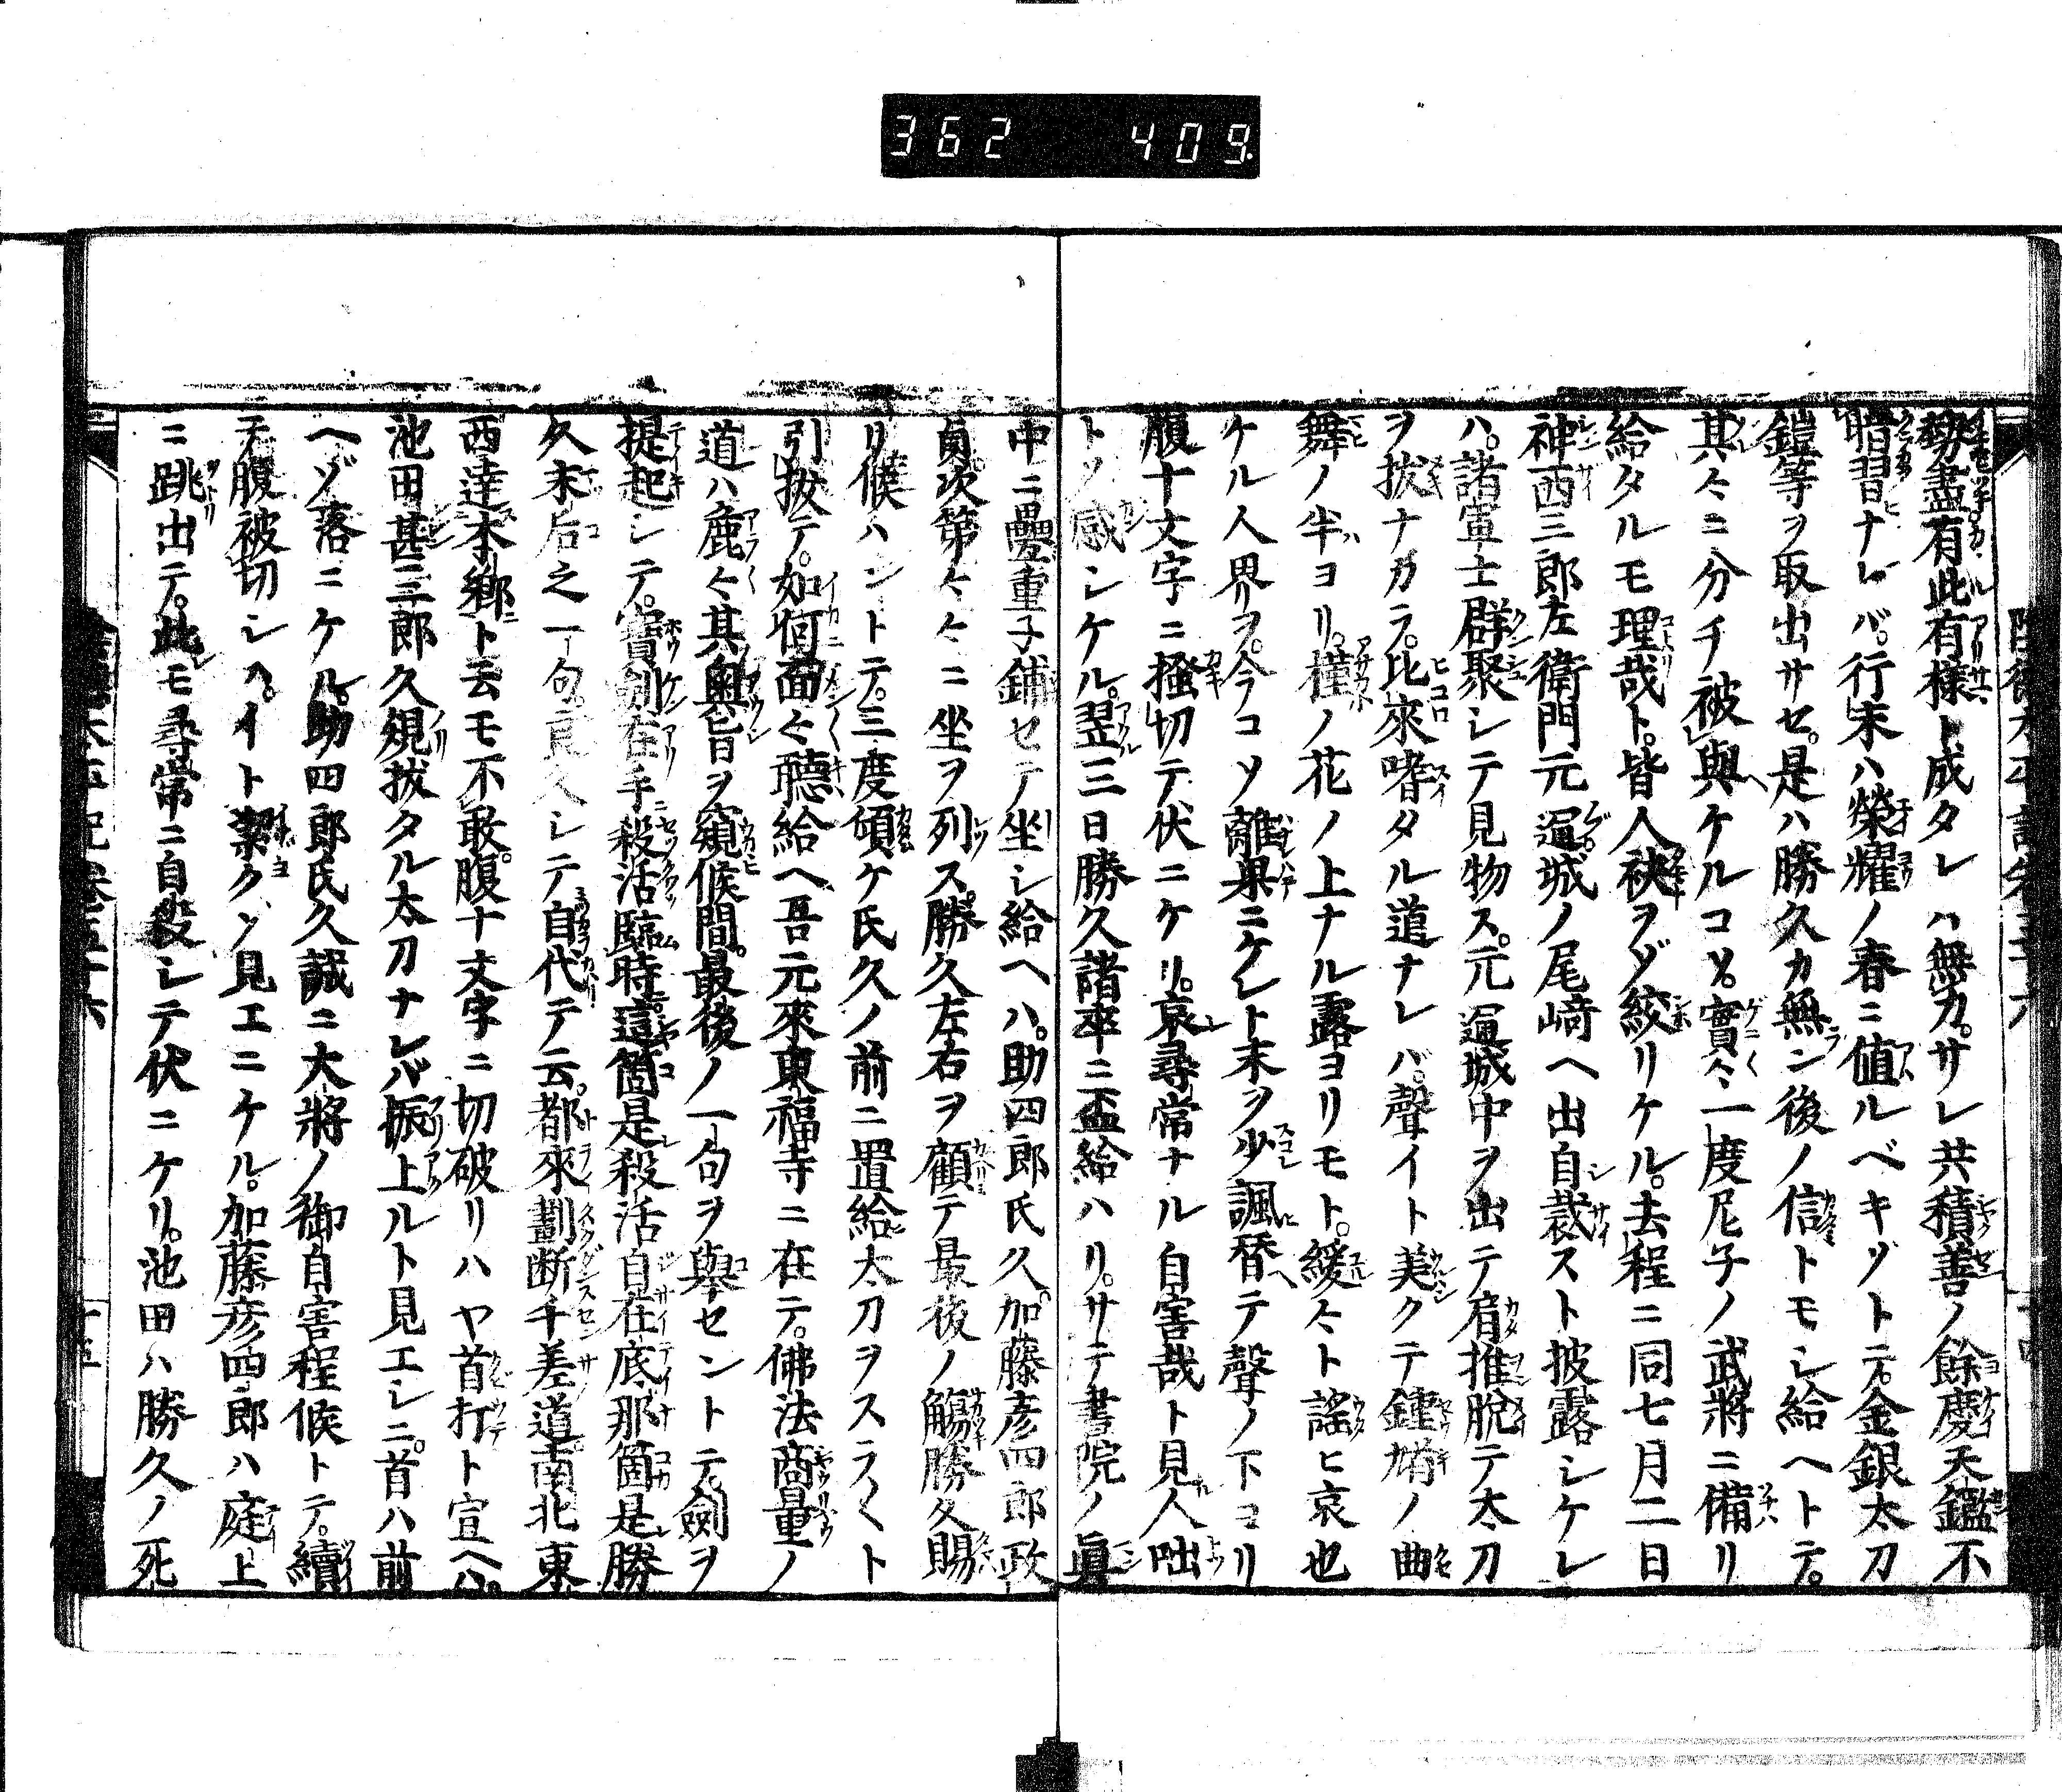 362 409.
勢盡有此有様ト成タレハ無力。サレ共積善ノ餘慶天鑑不
暗習ナレバ。行末ハ榮耀ノ春ニ値ルベキゾトテ。金銀太刀
鎧等ヲ取出サセ。是ハ勝久カ無ン後ノ信トモシ給ヘトテ。
其々ニ分チ被與ケルコソ。實々一度尼子ノ武將ニ備リ
給タルモ理哉ト。皆人袂ヲゾ絞リケル。去程ニ同七月二日
神西三郎左衛門元通城ノ尾﨑ヘ出自裁スト披露シケレ
ハ。諸軍士群聚シテ見物ス。元通城中ヲ出テ肩推脱テ太刀
ヲ拔ナカラ。比來嗜タル道ナレバ。聲イト美クテ鍾馗ノ曲
舞ノ半ヨリ。槿ノ花ノ上ナル露ヨリモト。緩々ト謠ヒ哀也
ケル人界ヲ。今コソ離果ニケレト末ヲ少諷替テ聲ノ下ヨリ
腹十文字ニ搔切テ伏ニケリ。哀尋常ナル自害哉ト見人咄
トソ感シケル。翌三日勝久諸卒ニ盃給ハリ。サテ書院ノ眞
中ニ疊重子鋪セテ坐シ給ヘハ。助四郎氏久。加藤彦四郎政
貞次第々々ニ坐ヲ列ス。勝久左右ヲ顧テ最後ノ觴勝久賜
リ候ハントテ。三度傾ケ氏久ノ前ニ置給太刀ヲスラ〱ト
引拔テ。如何面々聽給ヘ吾元來東福寺ニ在テ。佛法商量ノ
道ハ麁々其奥旨ヲ窺候間。最後ノ一句ヲ擧セントテ。劍ヲ
提起シテ。寶劍在手殺活臨時。這箇是殺活自在底那箇是勝
久末后之一句。良久シテ自代テ云。都來劃断千差道。南北東
西達本郷ト云モ不敢。腹十文字ニ切破リハヤ首打ト宣ヘハ。
池田甚三郎久規拔タル太刀ナレバ振上ルト見エシニ。首ハ前
ヘゾ落ニケル。助四郎氏久誠ニ大將ノ御自害程候トテ。續
テ腹被切シヘ。イト潔クソ見エニケル。加藤彦四郎ハ庭上
ニ跳出テ。此モ尋常ニ自殺シテ伏ニケリ。池田ハ勝久ノ死